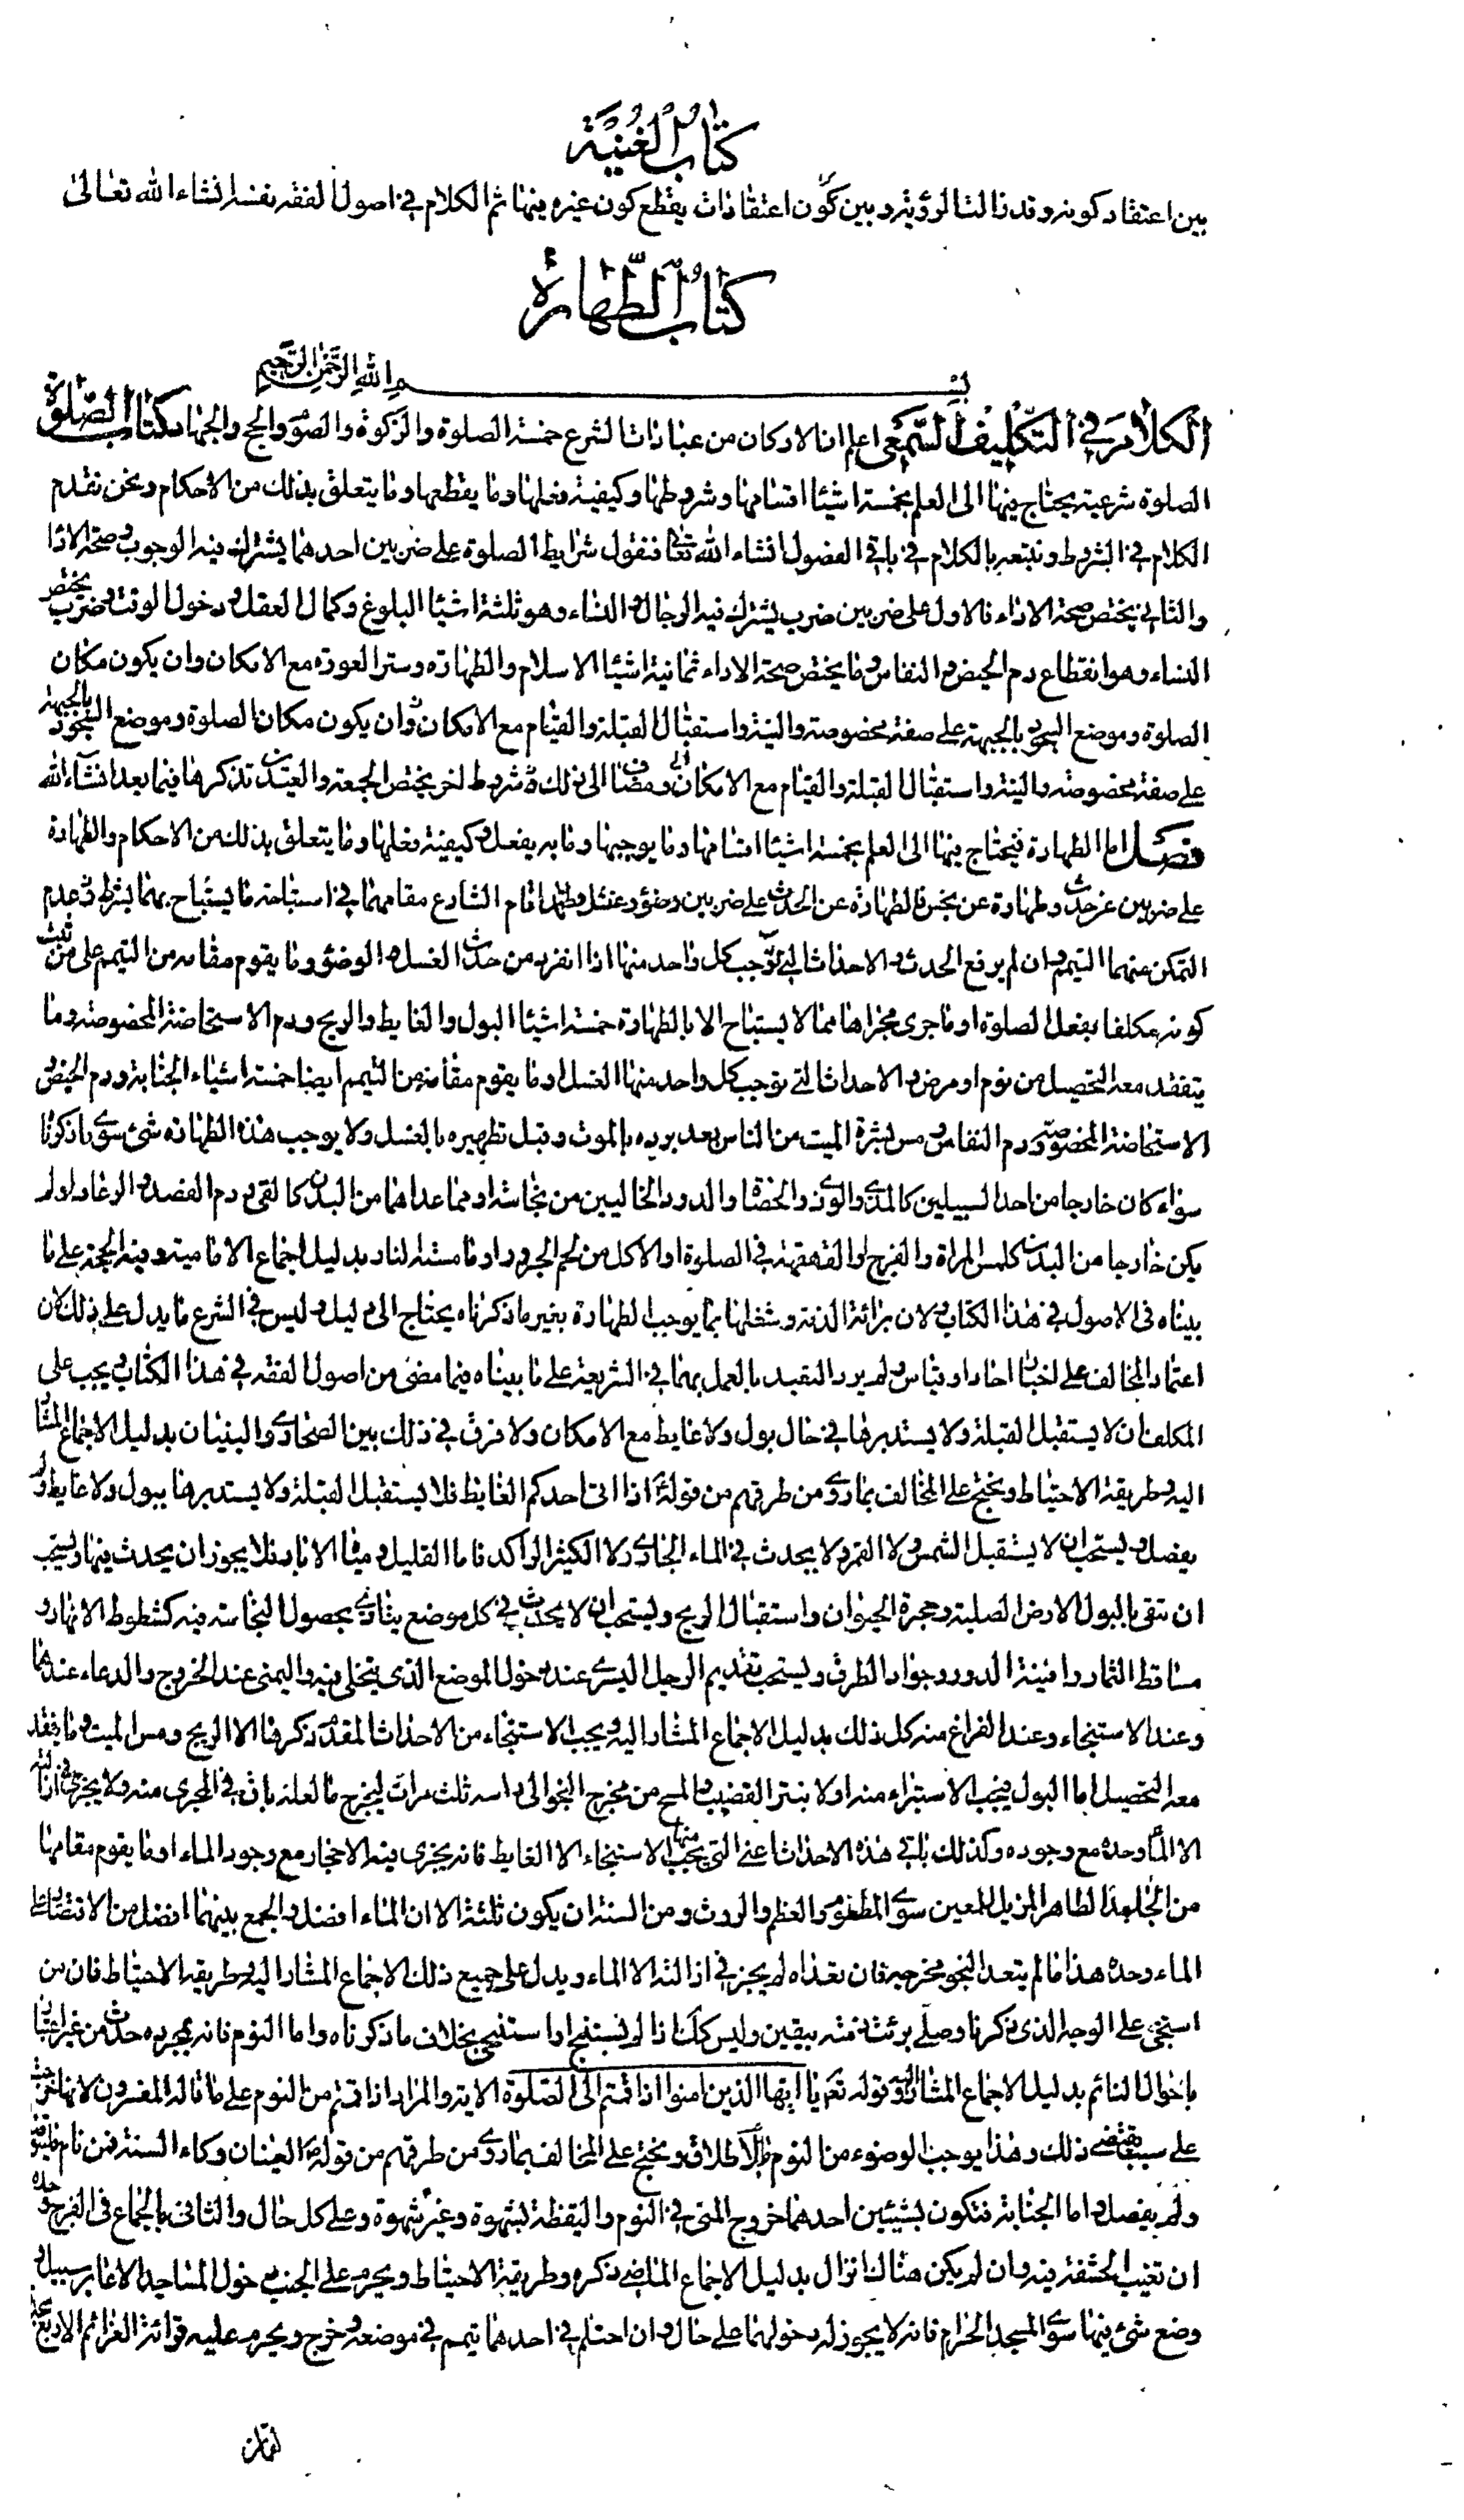 كتاب الغنية
بين اعتقاد كونه وقد زالت الرؤية وبين كون اعتقادات يقطع كون غيره فيها ثم الكلام في اصول الفقه بفسر انشاء الله تعالى
كتاب الطهارة
بسم الله الرحمن الرحيم
الكلام في التكليف السمعي اعلم ان الاركان من عبادات الشرع خمسة الصلوة والزكوة والصوم والحج والجهاد كتاب الصلوة
الصلوة شرعية يحتاج فيها الى العلم بخمسة اشيئا اقسامها وشروطها وكيفية فعلها وما يقطعها وما يتعلق بذلك من الاحكام ونحن نقدم
الكلام في الشروط ونتبعه بالكلام في باقي الفصول انشاء الله تعالى فنقول شرايط الصلوة على ضربين احدهما يشترك فيه الوجوب وصحة الادا
والثاني يختص صحة الاداء فالاول على ضربين ضرب يشترك فيه الرجال والنساء وهو ثلثة اشيئا البلوغ وكمال العقل ودخول الوقت وضرب يختص
النساء وهو انقطاع دم الحيض والنفاس وما يختص صحة الاداء ثمانية اشيئا الاسلام والطهارة وستر العورة مع الامكان وان يكون مكان
الصلوة وموضع السجود بالجبهة على صفة مخصوصة والنية واستقبال القبلة والقيام مع الامكان وان يكون مكان الصلوة وموضع السجود بالجبهة
على صفة مخصوصة والنية واستقبال القبلة والقيام مع الامكان ومضاف الى ذلك شروط اخر يختص الجمعة والعيدين تذكرها فيما بعد انشاء الله
فصل اما الطهارة فيحتاج فيها الى العلم بخمسة اشيئا اقسامها وما يوجبها وما به يفعل وكيفية فعلها وما يتعلق بذلك من الاحكام والطهارة
على ضربين عن حدث وطهارة عن نجس فالطهارة عن الحدث على ضربين وضؤ وغسل وقد اقام الشارع مقامهما في استباحة ما يستباح بهما بشرط عدم
التمكن منهما التيمم وان لم يرفع الحدث والاحداث التي توجب كل واحد منها اذا انفرد من حدث الغسل الوضؤ وما يقوم مقامه من التيمم على من ثبت
كونه مكلفا بفعل الصلوة او ما جرى مجراها مما لا يستباح الا بالطهارة خمسة اشيئا البول والغايط والريح ودم الاستحاضة المخصوصة وما
يتفقد معه التحصيل من نوم او مرض والاحداث التي توجب كل واحد منها الغسل او ما يقوم مقامه من التيمم ايضا خمسة اشياء الجنابة ودم الحيض
الاستحاضة المخصوصة ودم النفاس ومس بشرة الميت من الناس بعد برده بالموت وقبل تطهيره بالغسل ولا يوجب هذه الطهارة شئ سوى ما ذكرنا
سواء كان خارجا من احد السبيلين كالمذي والوذي والحصا والدود الخاليين من نجاسة او مما عداهما من البدن كالقى ودم الفصد والرعاف او لم
يكن خارجا من البدن كلمس المراة والفرج او القهقهة في الصلوة او الاكل من لحم الجزور او ما مسته النار بدليل اجماع الامامية وفيه الحجة على ما
بيناه فى الاصول في هذا الكتاب ولان برائة الذمة وشغلها بما يوجب الطهارة بغير ما ذكرناه يحتاج الى دليل وليس في الشرع ما يدل على ذلك لان
اعتماد المخالف على اخبار احاد او قياس ولم يرد التعبد بالعمل بهما في الشريعة على ما بيناه فيما مضى من اصول الفقه في هذا الكتاب ويجب على
المكلف ان لا يستقبل القبلة ولا يستدبرها في حال بول ولا غايط مع الامكان ولا فرق في ذلك بين الصحاري والبنيان بدليل الاجماع المشار
اليه وطريقة الاحتياط ونحتج على المخالف بما روى من طرقهم من قوله اذا اتى احدكم الغايط فلا يستقبل القبلة ولا يستدبرها ببول ولا غايط ولم
يفصل ويستحب ان لا يستقبل الشمس ولا القمر ولا يحدث في الماء الجاري ولا الكثير الراكد فاما القليل ومياه الابار فلا يجوز ان يحدث فيها ويستحب
ان تتقى بالبول الارض الصلبة وجحرة الحيوان واستقبال الريح ويستحب ان لا يحدث في كل موضع يتاذى بحصول النجاسة فيه كشطوط الانهار و
مساقط الثمار وافنية الدور وجواد الطرق ويستحب تقديم الرجل اليسرى عند دخول الموضع الذى يتخلى فيه واليمنى عند الخروج والدعاء عندهما
وعند الاستنجاء وعند الفراغ منه كل ذلك بدليل الاجماع المشار اليه ويجب الاستنجاء من الاحداث المقدم ذكرها الا الريح ومس الميت وما يفقد
معه التحصيل اما البول فيجب الاستبراء منه اولا بنتر القضيب والمسح من مخرج النجو الى راسه ثلث مرات ليخرج ما لعله باق في المجرى منه ولا يجزى في ازالته
الا الماء وحده مع وجوده وكذلك باقى هذه الاحداث اعني التي يجب منها الاستنجاء الا الغايط فانه يجزى فيه الاحجار مع وجود الماء او ما يقوم مقامها
من الجامد الطاهر المزيل للعين سوى المطعوم والعظم والروث ومن السنة ان يكون ثلثة الا ان الماء افضل والجمع بينهما افضل من الاقتصار على
الماء وحده هذا ما لم يتعد النجو مخرجه فان تعداه لم يجز في ازالته الا الماء ويدل على جميع ذلك الاجماع المشار اليه وطريقة الاحتياط فان من
استنجى على الوجه الذى ذكرنا وصلى برئت ذمته بيقين وليس كذلك اذا لم يستنج او استنجى بخلاف ما ذكرناه واما النوم فانه بمجرده حدث من غير اعتبار
باحوال النائم بدليل الاجماع المشار اليه وقوله تعالى يا ايها الذين امنوا اذا قمتم الى الصلوة الاية والمراد اذا قمتم من النوم على ما قاله المفسرون لانها خرجت
على سبب يقتضى ذلك وهذا يوجب الوضوء من النوم بالاطلاق ونحتج على المخالف بما روى من طرقهم من قوله العينان وكاء السته فمن نام فليتوضأ
ولم يفصل واما الجنابة فتكون بشيئين احدهما خروج المنى في النوم واليقظة بشهوة وغير شهوة وعلى كل حال والثاني بالجماع في الفرج وحده
ان تغيب الحشفة فيه وان لم يكن هناك انزال بدليل الاجماع الماضي ذكره وطريقة الاحتياط ويحرم على الجنب دخول المساجد الا عابر سبيل و
وضع شئ فيها سوى المسجد الحرام فانه لا يجوز له دخولهما على حال وان احتلم في احدهما تيمم في موضعه وخرج ويحرم عليه قرائة العزائم الاربع